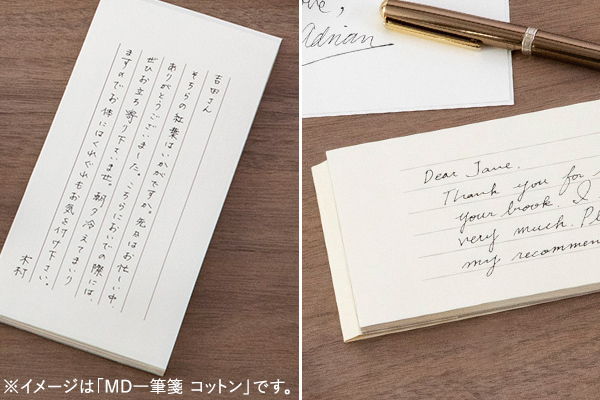 吉田さん
そちらの紅葉はいかがですか。先日はお忙しい中、
ありがとうございました。こちらにおいでの際には、
ぜひお立ち寄り下さいませ。朝夕冷えてまいり
ますのでお体にはくれぐれもお気を付け下さい。
木村
ve,
Adrian
Dear Jane,
Thank you for
your book. I
very much. Pl
my recommen
※イメージは「MD一筆箋 コットン」です。